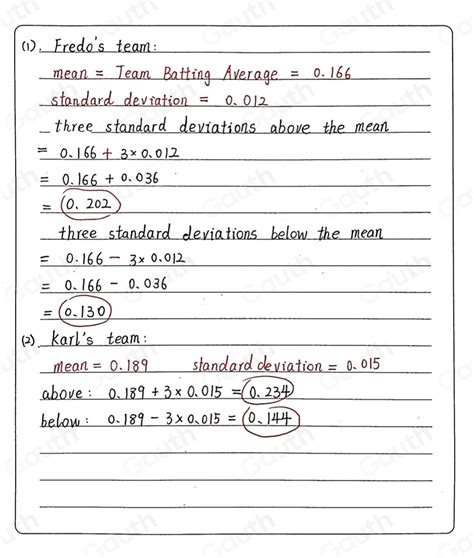 (1). Fredo's team:
mean = Team Batting Average = 0.166
standard deviation = 0.012
three standard deviations above the mean
= 0.166 + 3×0.012
= 0.166 + 0.036
= 0.202
three standard deviations below the mean
= 0.166 - 3×0.012
= 0.166 - 0.036
= 0.130
(2). Karl's team:
mean = 0.189 standard deviation = 0.015
above: 0.189 + 3×0.015 = 0.234
below: 0.189 - 3×0.015 = 0.144
Gauth